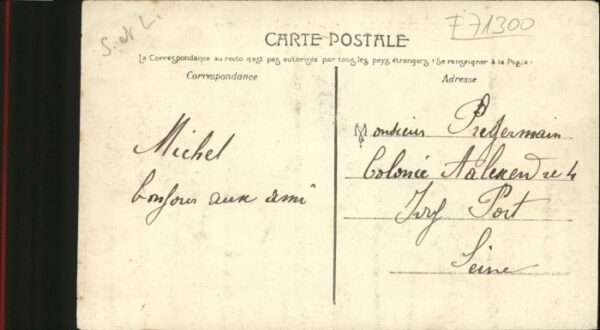 S. et L.
F71300
CARTE POSTALE
La Correspondance au recto n'est pas autorisée par tous les pays étrangers (Se renseigner à la Poste)
Correspondance
Adresse
Michel
bonjour aux ami
Monsieur Pregermain
Colonie Aalexendre 4
Ivry Port
Seine